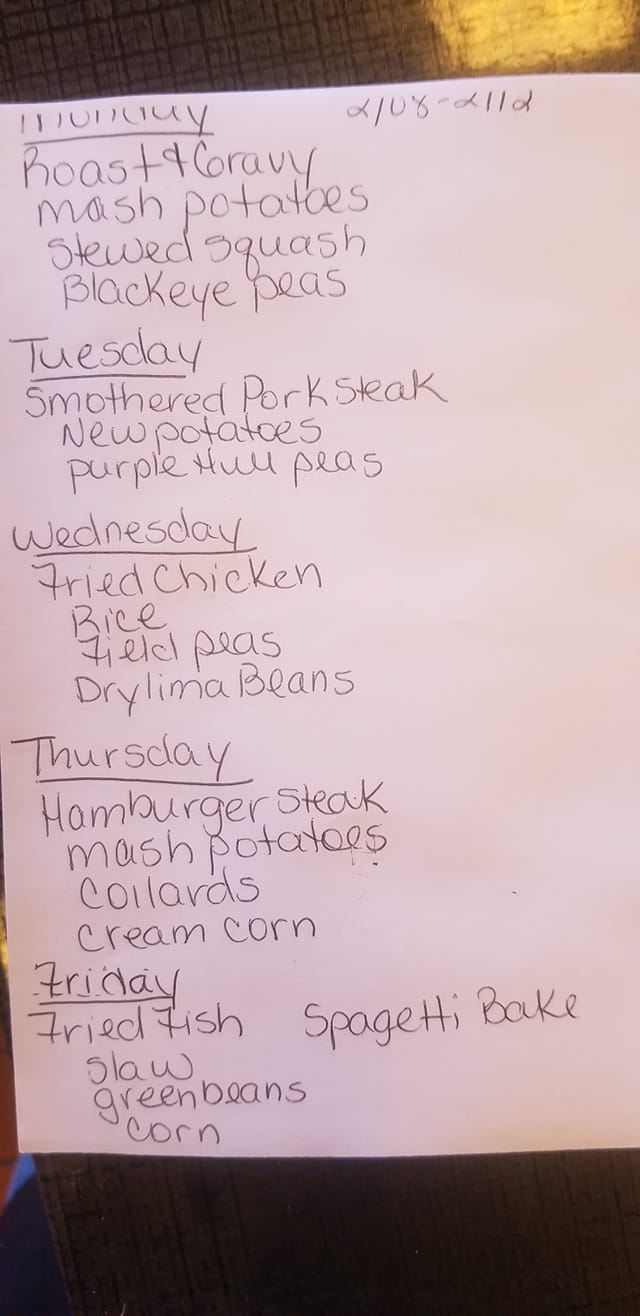 Monday 2/08-2/12
Roast & Gravy
mash potatoes
Stewed squash
Blackeye peas
Tuesday
Smothered Pork Steak
New potatoes
purple Hull peas
Wednesday
Fried Chicken
Rice
Field peas
Dry lima Beans
Thursday
Hamburger Steak
mash potatoes
Collards
Cream corn
Friday
Fried Fish Spagetti Bake
Slaw
greenbeans
corn